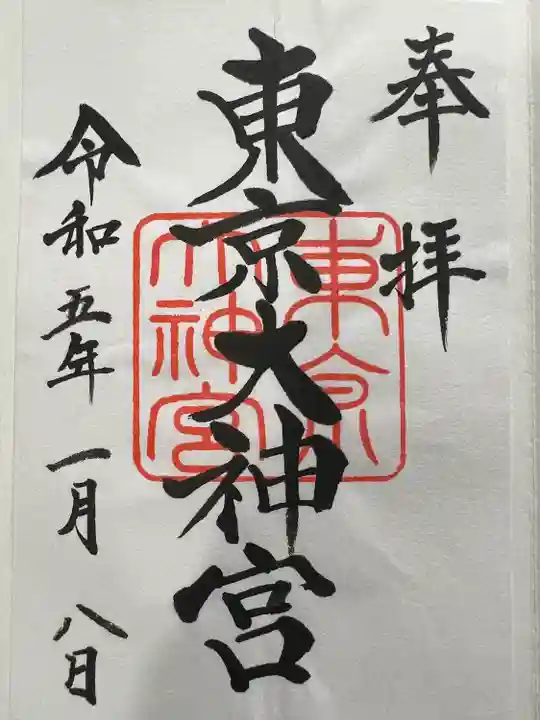 奉拝
東京大神宮
東京大神宮
令和五年一月八日